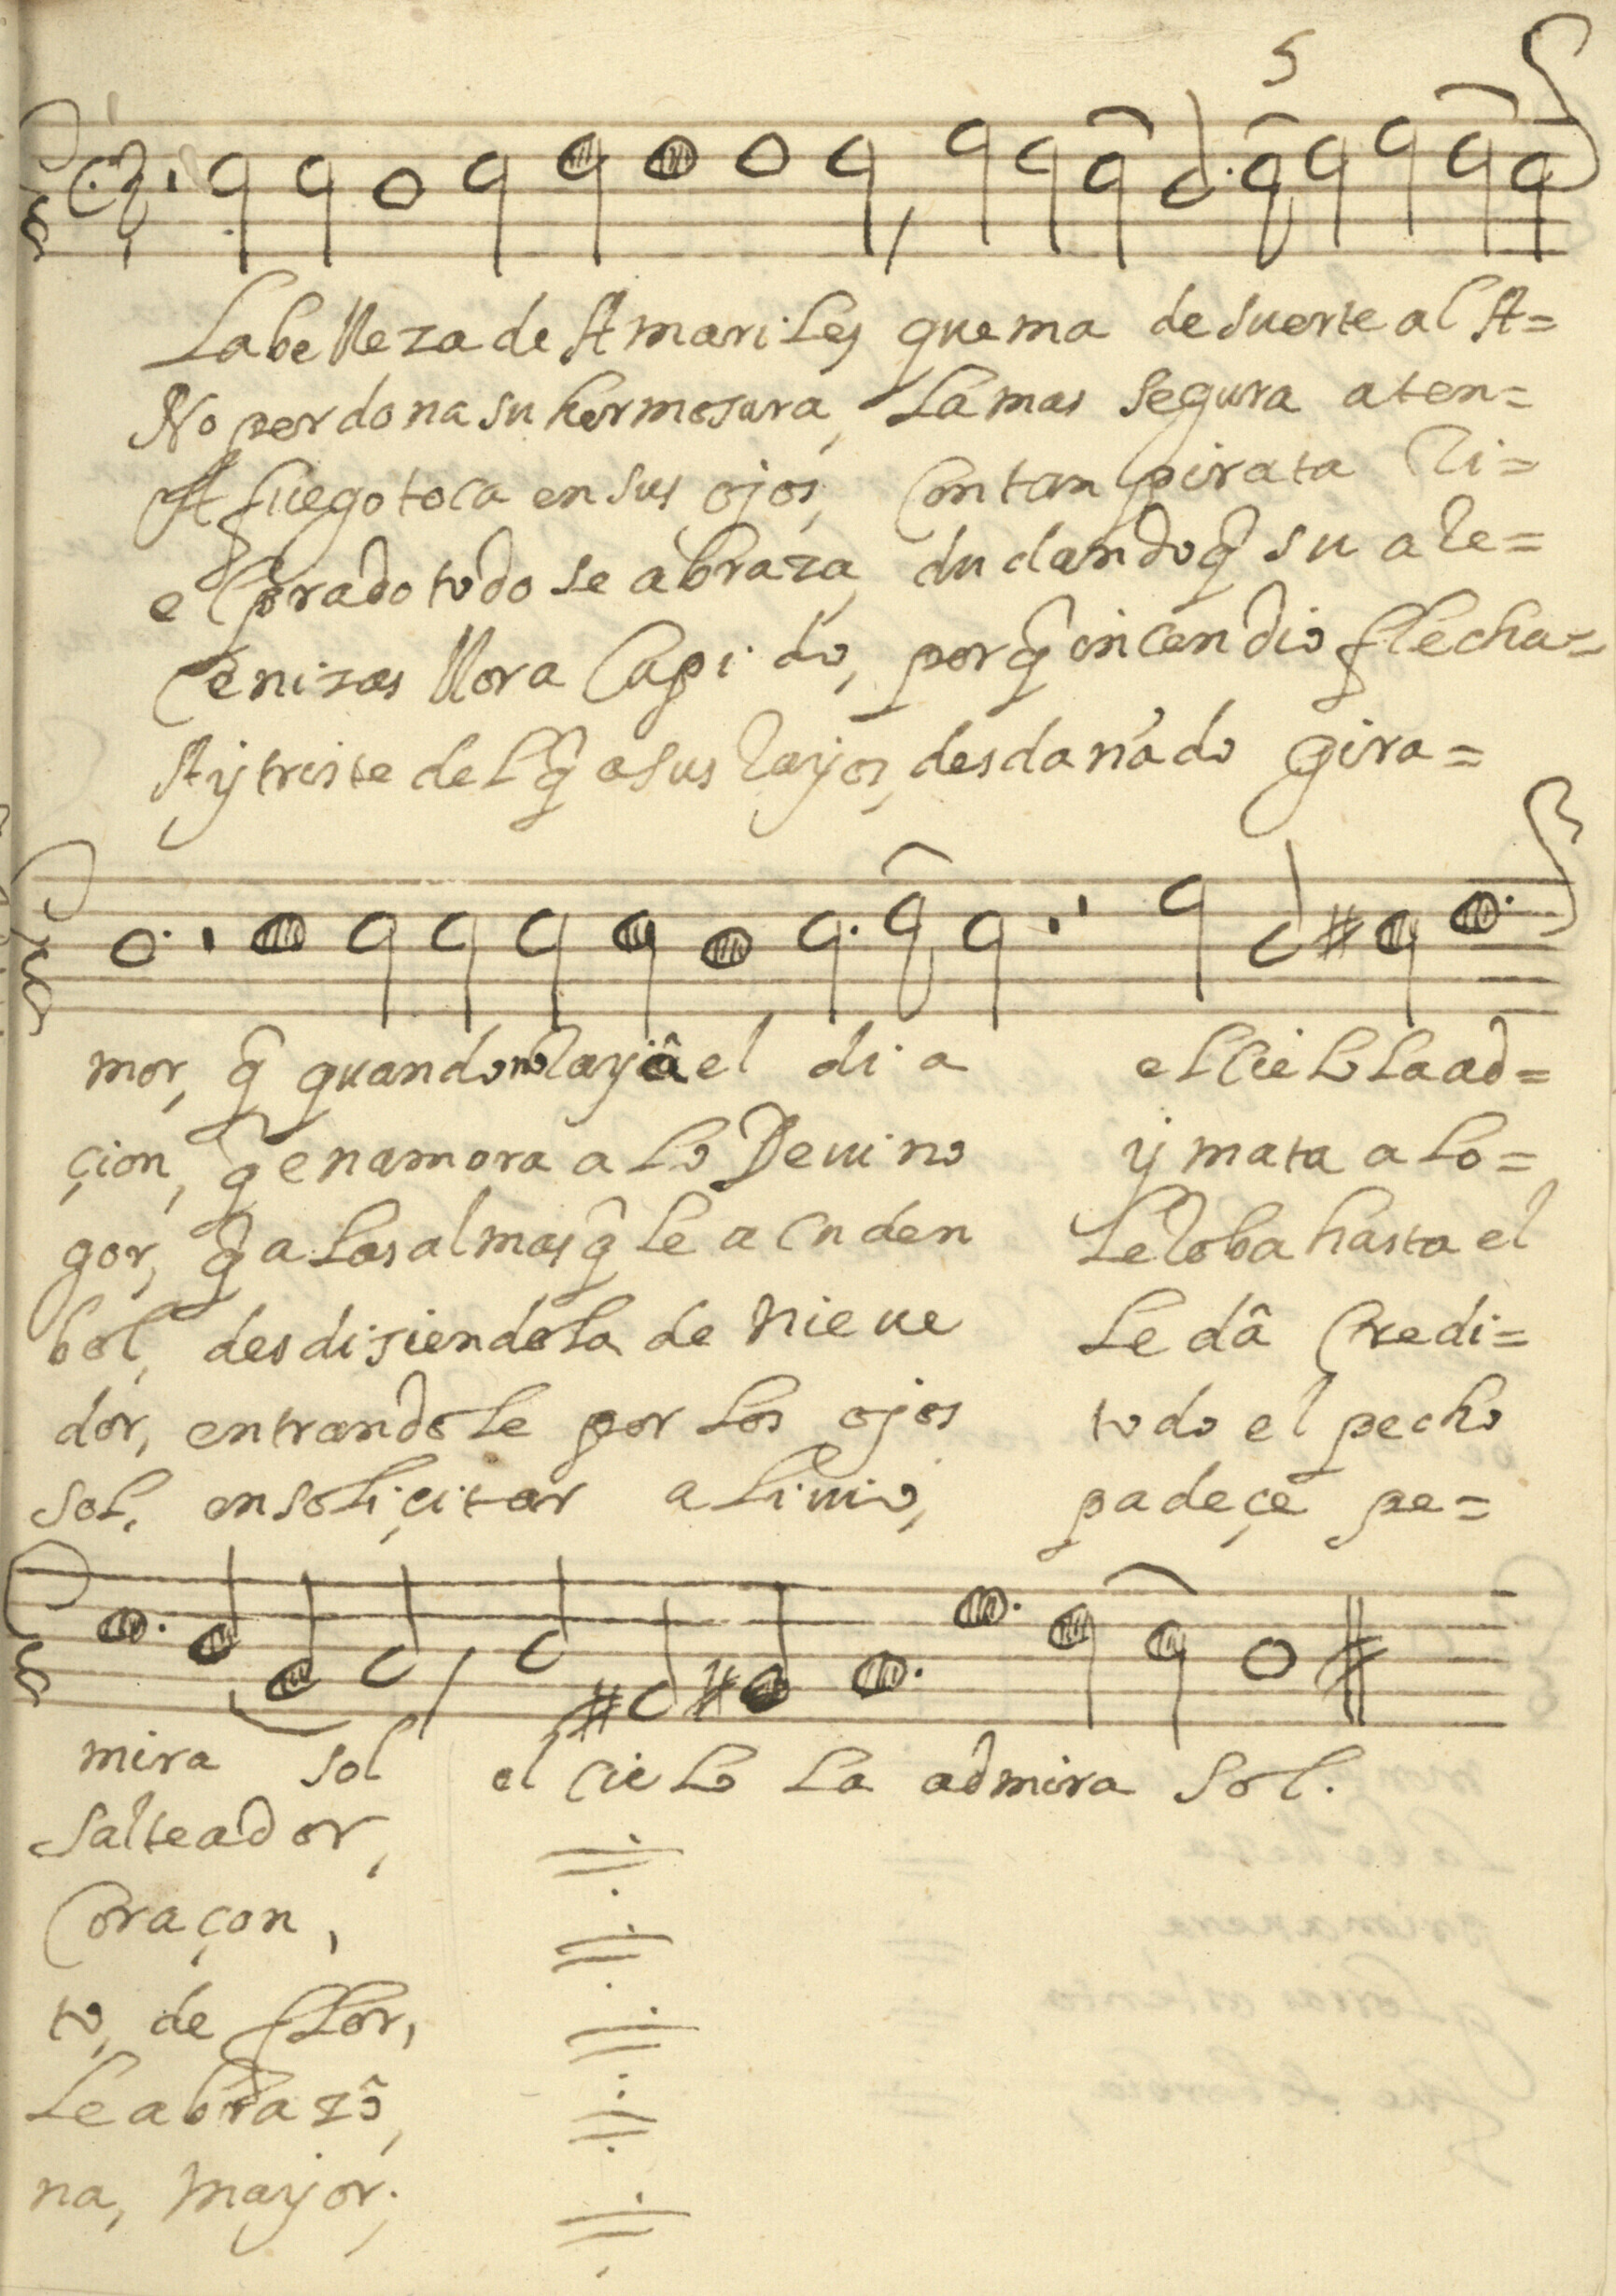 5
La belleza de Amariles quema de suerte al A=
No perdona su hermosura, La mas segura aten=
A fuego toca en sus ojos, Con tan pirata Ri=
el prado todo se abraza, dudando q̃ su are=
Cenizas llora Cupido, porq̃ incendio flecha=
Ay triste del q̃ a sus Rayos, desdañado gira=
mor, q̃ quando no Raya el dia el Cielo La ad=
çion, q̃ enamora a Lo Deuino y mata a Lo=
gor, q̃ a Las almas q̃ Le acuden Le Roba hasta el
bol, desdisiendola de Nieue Le dâ Credi=
dor, entrandole por Los ojos todo el pecho
sol, en soliçitar aliuio, padeçe pe=
mira sol el Cielo La admira Sol.
Salteador,
Coraçon,
to, de fLor,
Le abrazô,
na, mayor.